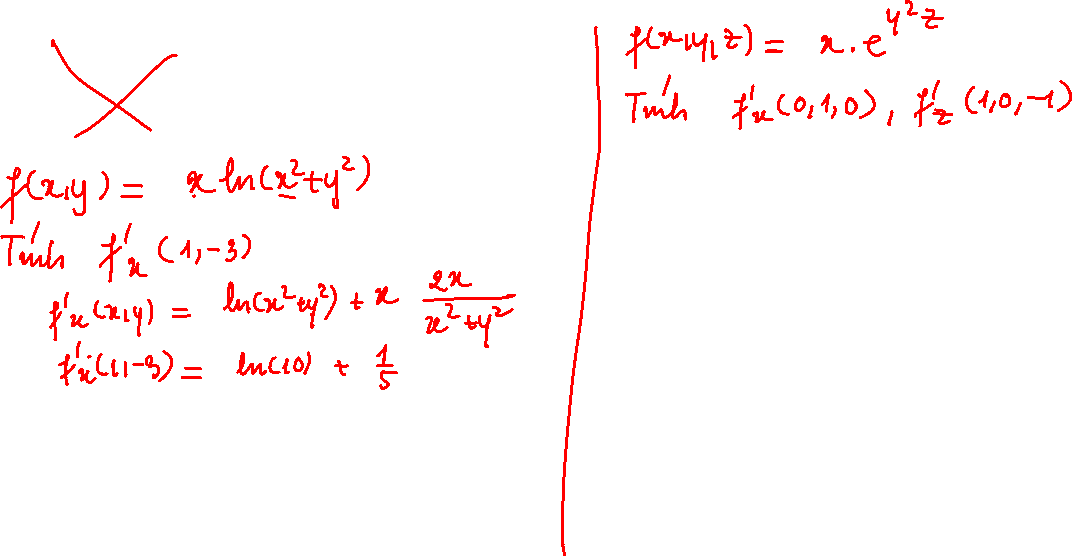 f(x,y) = x ln(x²+y²)
Tính f'ₓ (1,-3)
f'ₓ(x,y) = ln(x²+y²) + x \frac{2x}{x²+y²}
f'ₓ(1,-3) = ln(10) + \frac{1}{5}
f(x,y,z) = x.e^{y²z}
Tính f'ₓ(0,1,0), f'_z (1,0,-1)